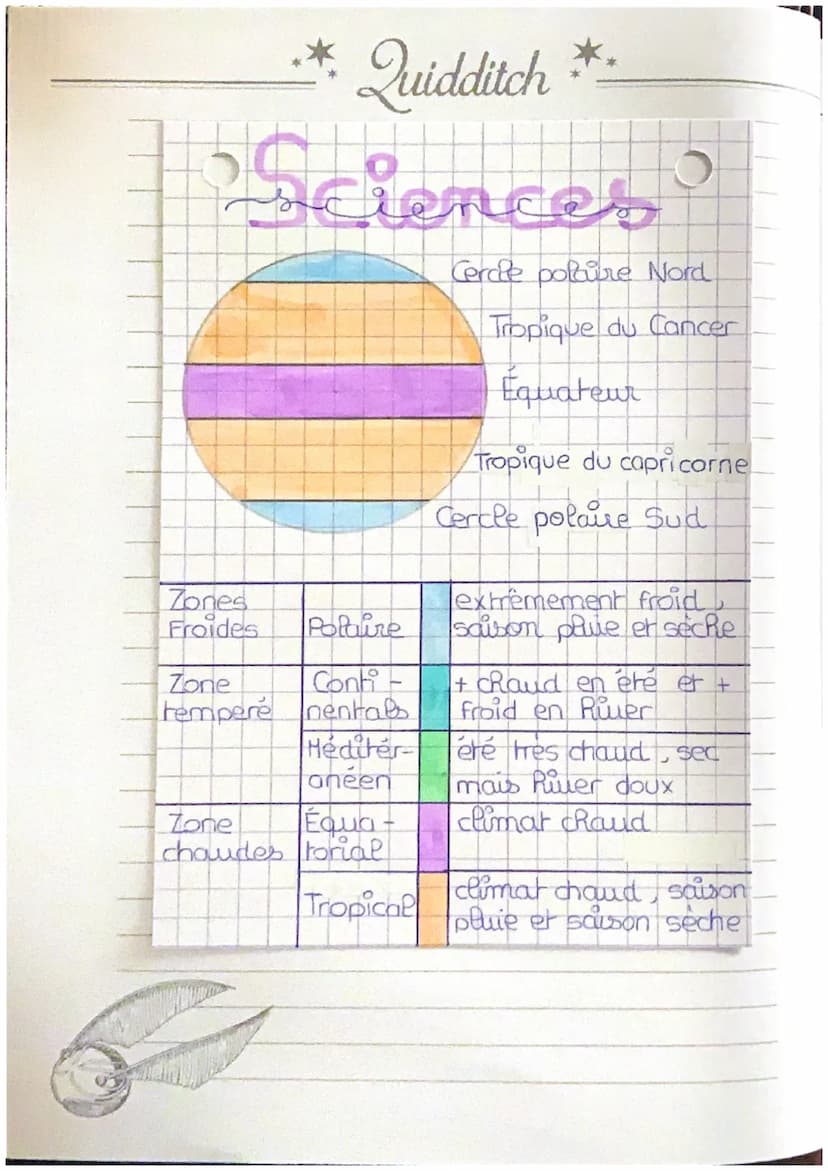 Quidditch
Sciences
sciences
Cercle polaire Nord
Tropique du Cancer
Équateur
Tropique du capricorne
Cercle polaire Sud
Zones
Froides
Polaire
extrêmement froid,
saison pluie et sèche
Zone
temperé
Conti-
nentals
+ chaud en été et +
froid en hiver
Méditér-
anéen
été très chaud, sec
mais hiver doux
Zone
chaudes
Équa-
torial
climat chaud
Tropical
climat chaud, saison
pluie et saison sèche